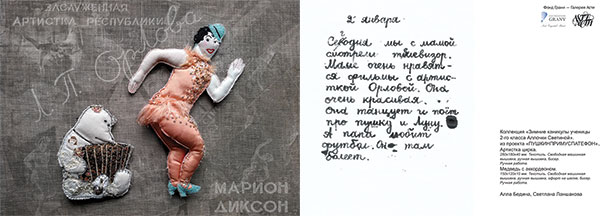 ЗАСЛУЖЕННАЯ
АРТИСТКА РЕСПУБЛИКИ
Л. П. Орлова
МАРИОН
ДИКСОН
2 января.
Сегодня мы с мамой
смотрели телевизор.
Маме очень нравят-
ся фильмы с артис-
ткой Орловой. Она
очень красивая.
Она танцует и поёт
про пушку и Луну.
А папа любит
футбол. Он там
болеет.
Фонд Грани — Галерея Асти
GRANY
Коллекция «Зимние каникулы ученицы
2-го класса Аллочки Светиной».
из проекта «ПУШКИНПРИМУСПАТЕФОН».
Артистка цирка.
Текстиль. Свободная машинная
вышивка, ручная вышивка, бисер.
Ручная работа.
Медведь с аккордеоном.
Текстиль. Свободная машинная
Ручная работа
Алла Бедина, Светлана Ланшакова